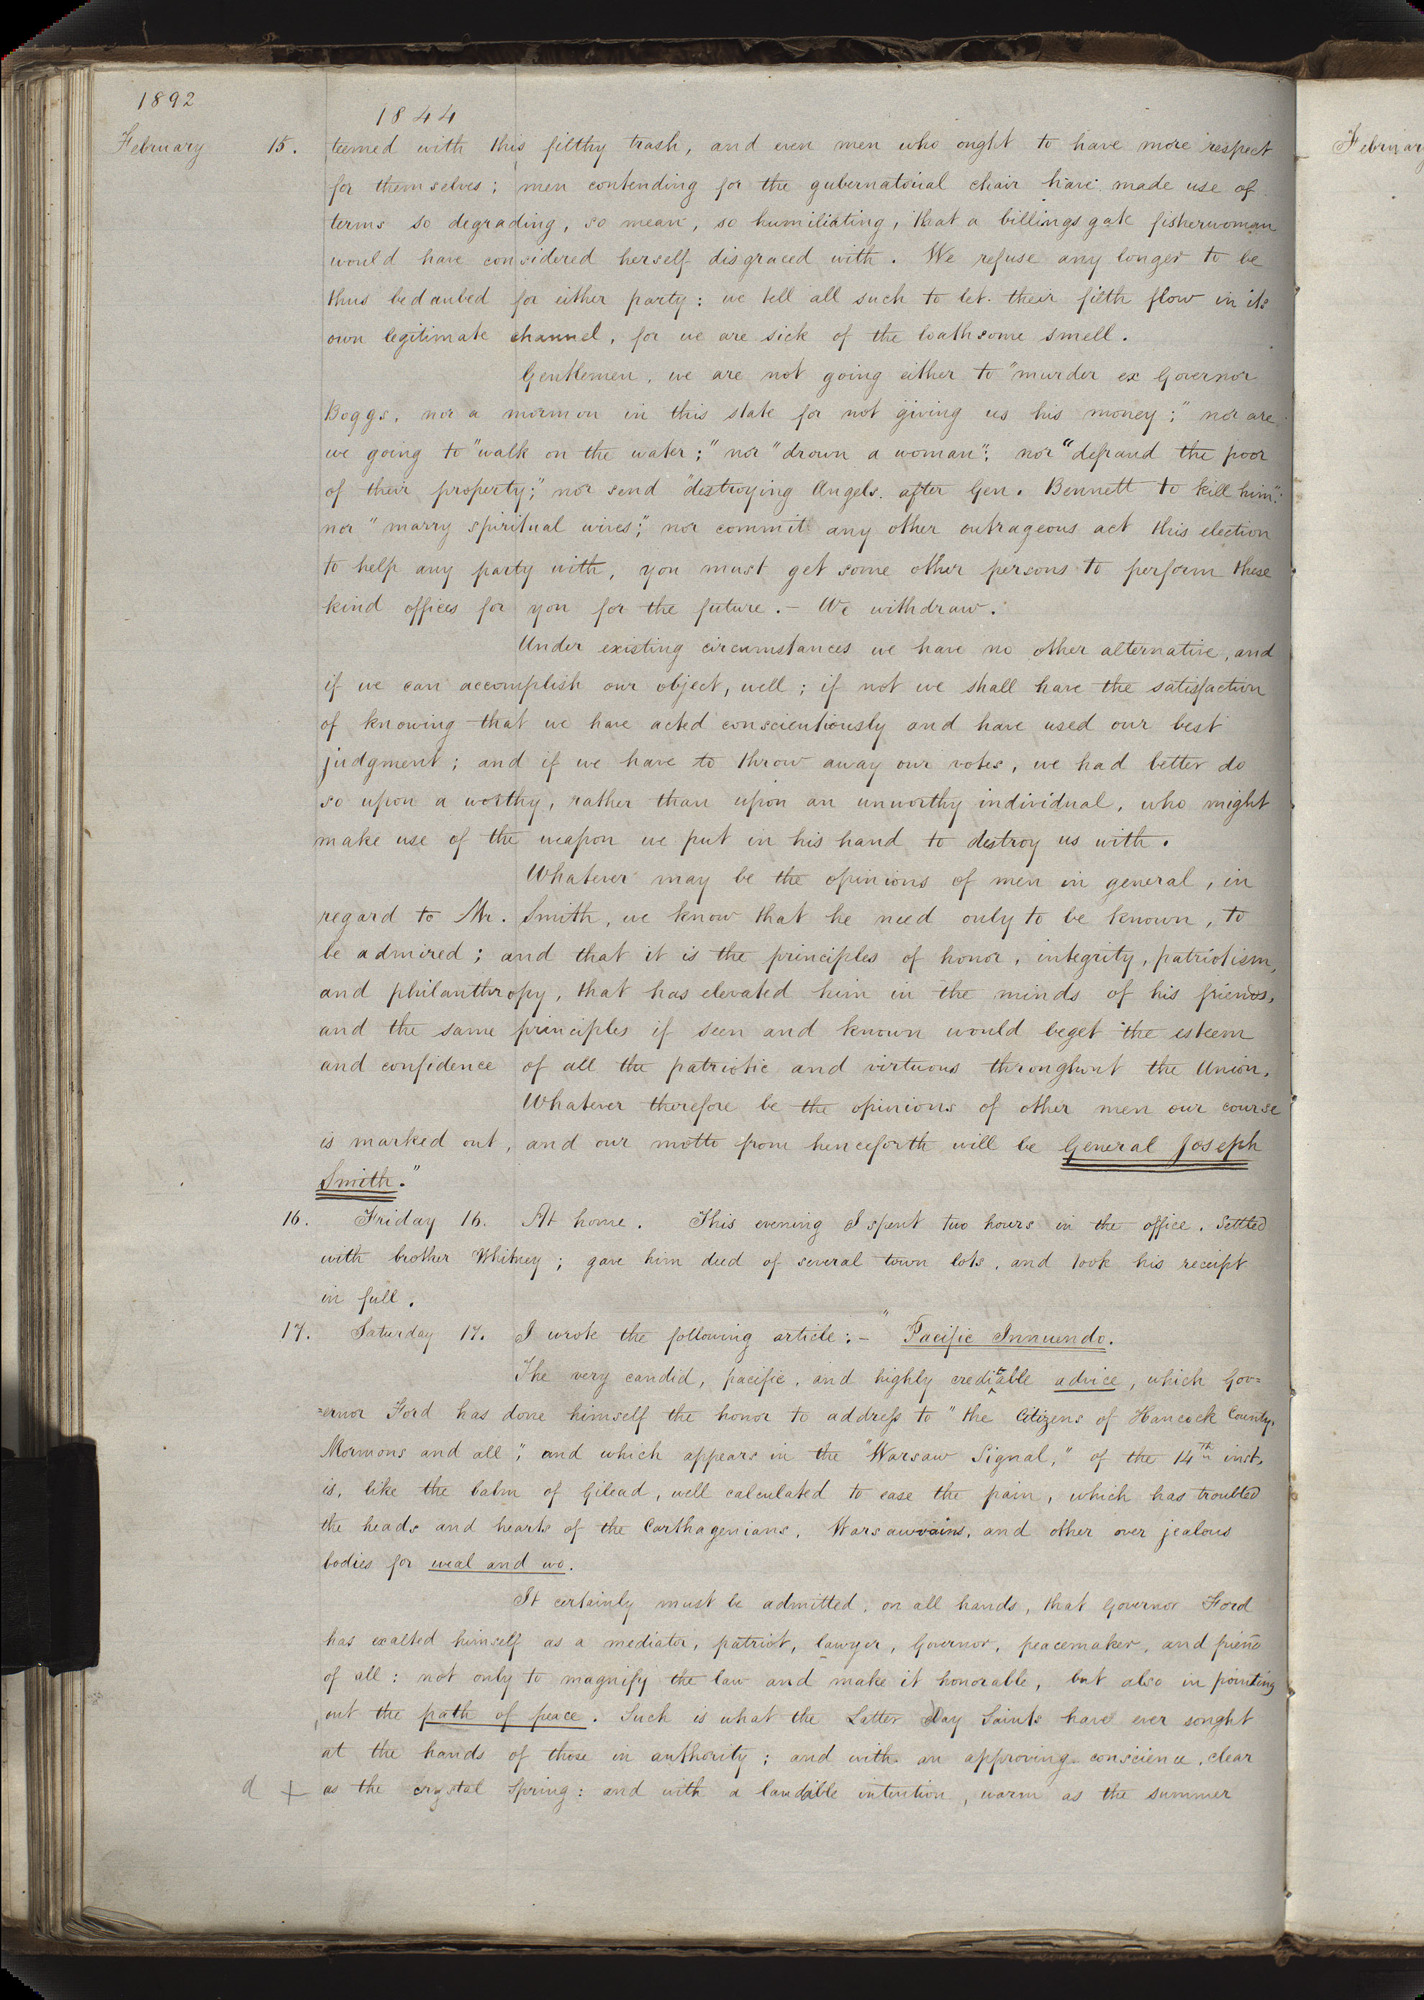 1892
1844
February 15. teemed with this filthy trash, and even men who ought to have more respect
for themselves; men contending for the gubernatorial chair have made use of
terms so degrading, so mean, so humiliating, that a billingsgate fisherwoman
would have considered herself disgraced with. We refuse any longer to be
thus bedaubed for either party: we tell all such to let their filth flow in its
own legitimate channel, for we are sick of the loathsome smell.
Gentlemen, we are not going either to "murder ex Governor
Boggs, nor a mormon in this state for not giving us his money;" nor are
we going to "walk on the water;" nor "drown a woman"; nor "defraud the poor
of their property;" nor send "destroying Angels after Gen. Bennett to kill him";
nor "marry spiritual wives;" nor commit any other outrageous act this election
to help any party with, you must get some other persons to perform these
kind offices for you for the future.– We withdraw.
Under existing circumstances we have no other alternative, and
if we can accomplish our object, well; if not we shall have the satisfaction
of knowing that we have acted conscientiously and have used our best
judgment; and if we have to throw away our votes, we had better do
so upon a worthy, rather than upon an unworthy individual, who might
make use of the weapon we put in his hand to destroy us with.
Whatever may be the opinions of men in general, in
regard to Mr. Smith, we know that he need only to be known, to
be admired; and that it is the principles of honor, integrity, patriotism,
and philanthropy, that has elevated him in the minds of his friends,
and the same principles if seen and known would beget the esteem
and confidence of all the patriotic and virtuous throughout the Union.
Whatever therefore be the opinions of other men our course
is marked out, and our motto from henceforth will be General Joseph
Smith."
16. Friday 16. At home. This evening I spent two hours in the office. Settled
with brother Whitney; gave him deed of several town lots, and took his receipt
in full.
17. Saturday 17. I wrote the following article:– "Pacific Innuendo.
The very candid, pacific, and highly creditable advice, which Gov=
=ernor Ford has done himself the honor to address to "the Citizens of Hancock County,
Mormons and all", and which appears in the "Warsaw Signal," of the 14th inst,
is, like the balm of Gilead, well calculated to ease the pain, which has troubled
the heads and hearts of the Carthagenians, Warsawvians, and other over jealous
bodies for weal and wo.
It certainly must be admitted, on all hands, that Governor Ford
has exalted himself as a mediator, patriot, lawyer, Governor, peacemaker, and friend
of all: not only to magnify the law and make it honorable, but also in pointing
out the path of peace. Such is what the Latter Day Saints have ever sought
at the hands of those in authority; and with an approving conscience, clear
d + as the crystal spring: and with a laudable intention, warm as the summer
February